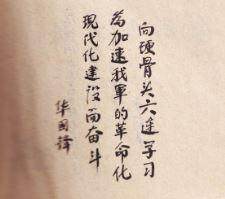 向硬骨头六连学习
为加速我軍的革命化
現代化建設而奋斗
华国锋